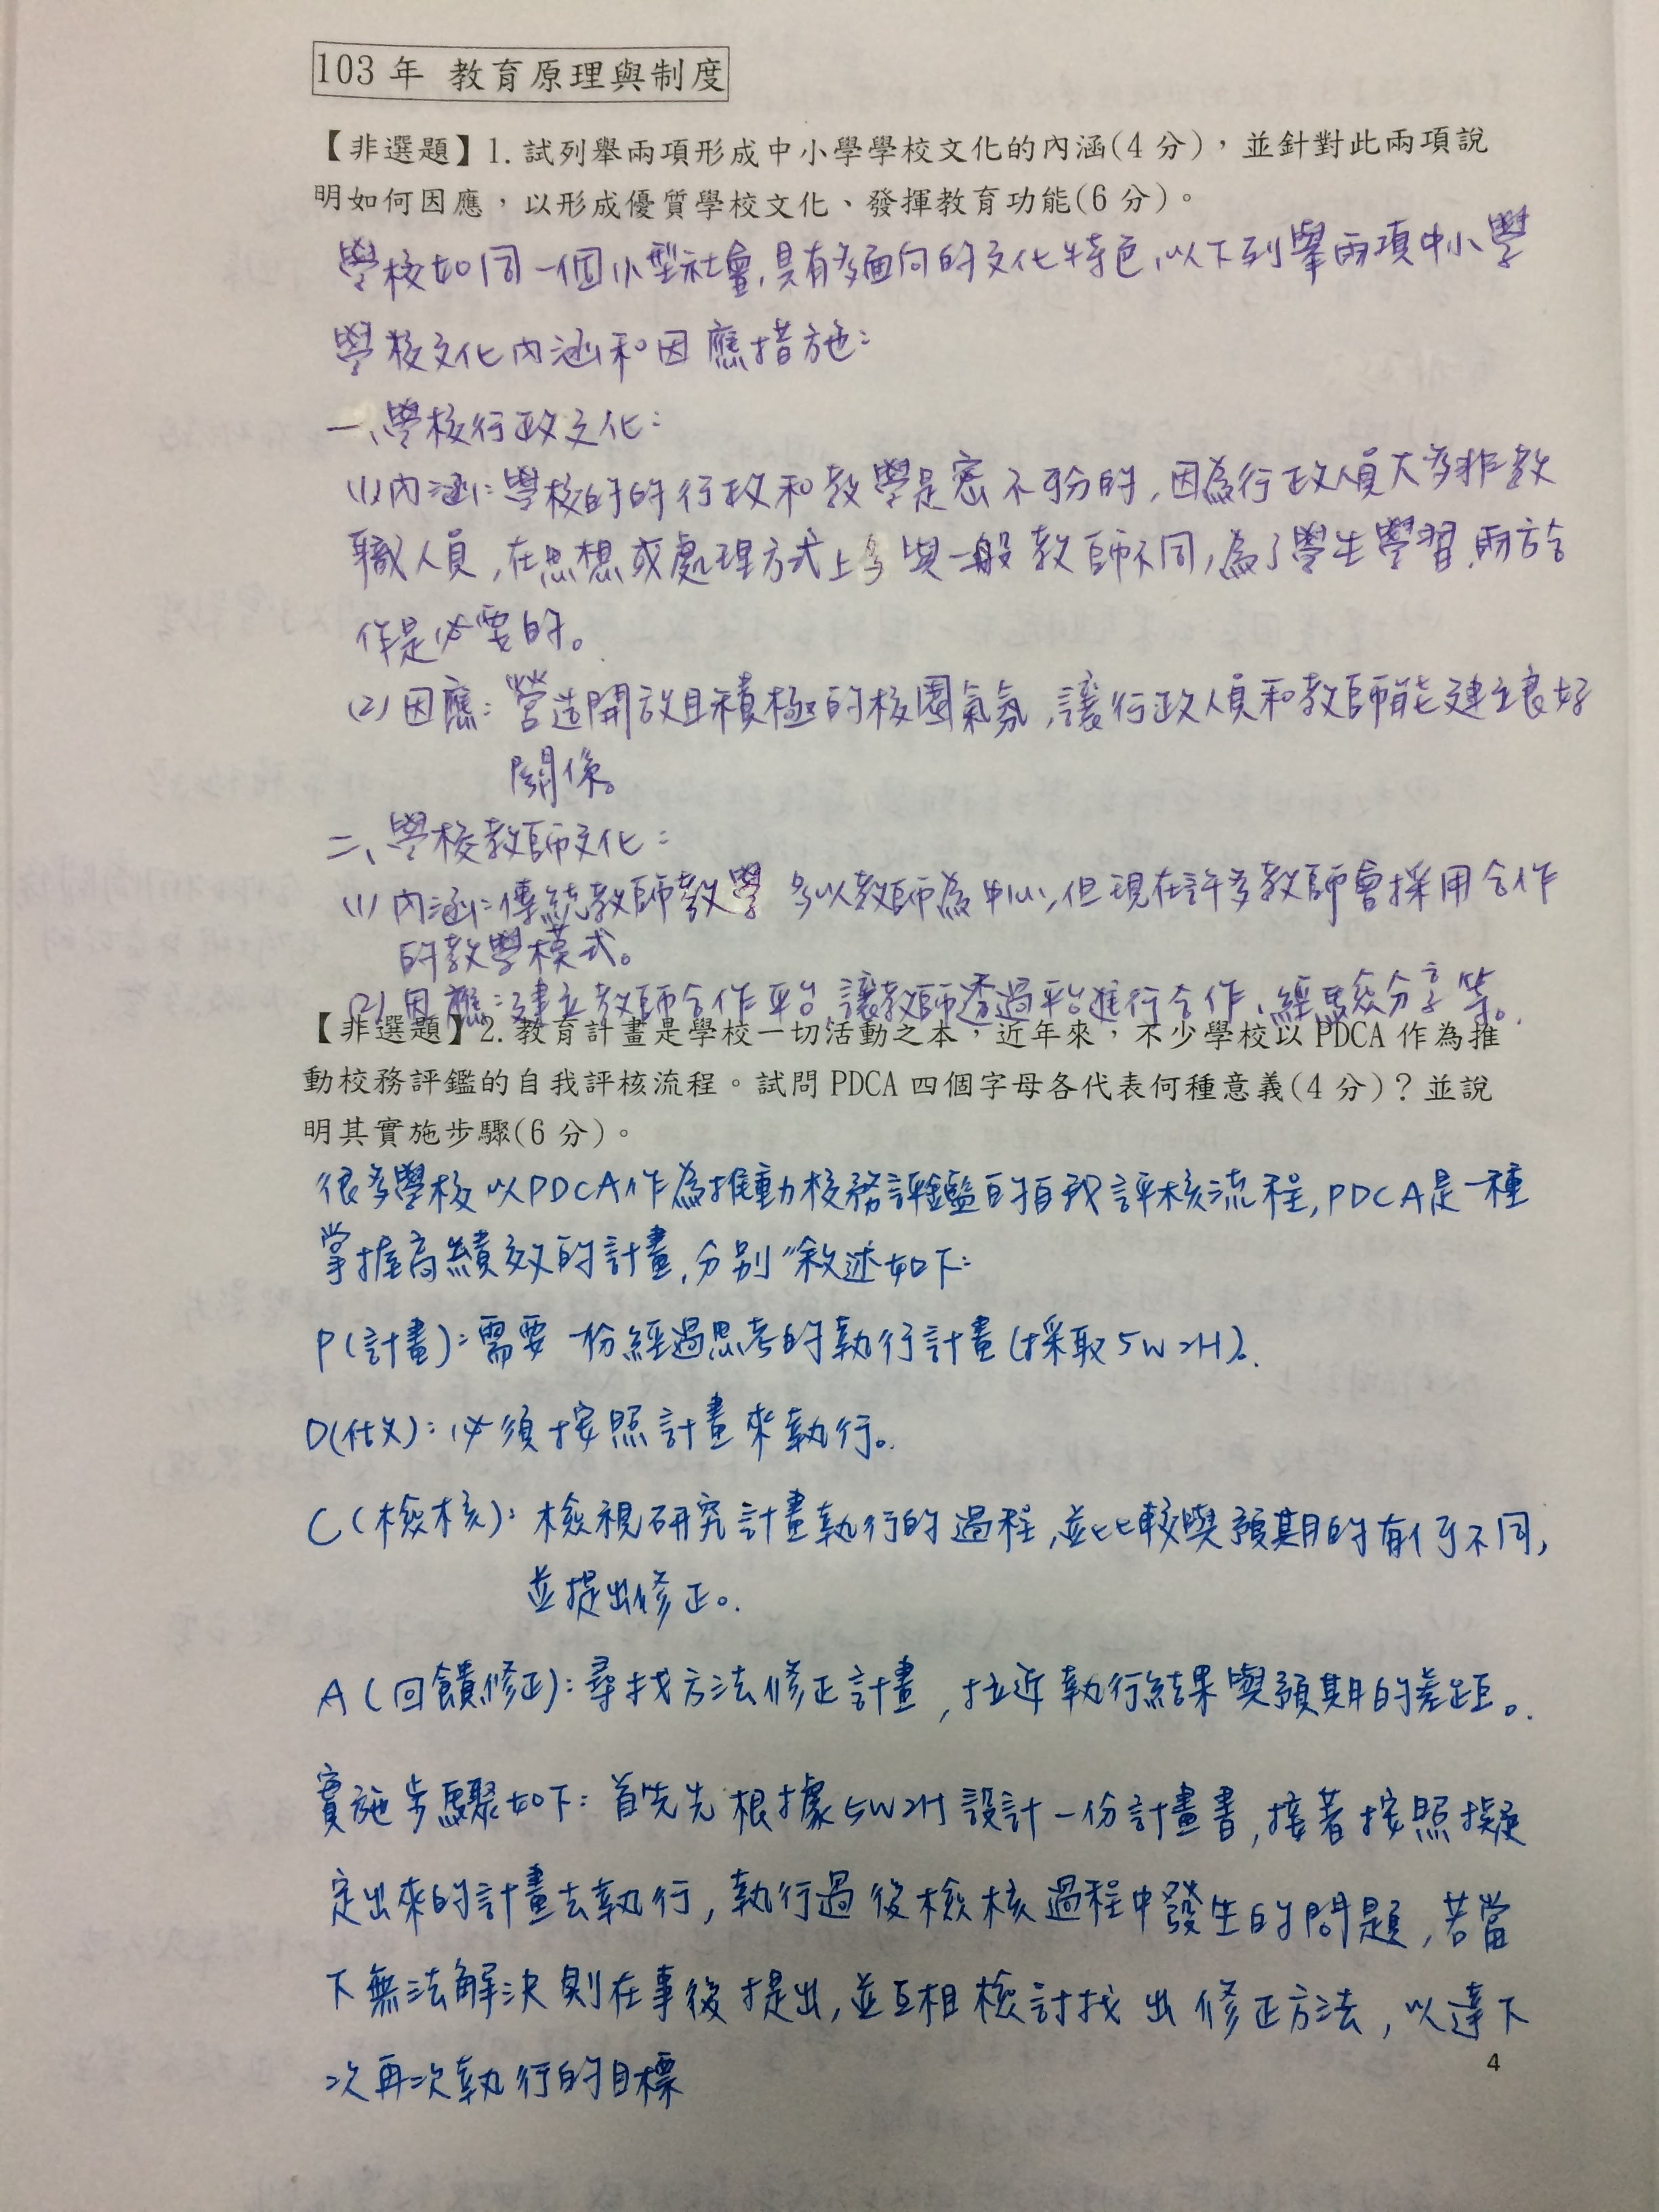 103 年 教育原理與制度
【非選題】1. 試列舉兩項形成中小學學校文化的內涵(4 分)，並針對此兩項說
明如何因應，以形成優質學校文化、發揮教育功能(6 分)。
學校如同一個小型社會,具有多面向的文化特色,以下列舉兩項中小學
學校文化內涵和因應措施:
一、學校行政文化:
(1)內涵:學校的的行政和教學是密不可分的,因為行政人員大多非教
職人員,在思想或處理方式上多與一般教師不同,為了學生學習,兩方合
作是必要的。
(2)因應:營造開放且積極的校園氣氛,讓行政人員和教師能建立良好
關係。
二、學校教師文化:
(1)內涵:傳統教師教學多以教師為中心,但現在許多教師會採用合作
的教學模式。
(2)因應:建立教師合作平台,讓教師透過平台進行合作、經驗分享等。
【非選題】2. 教育計畫是學校一切活動之本，近年來，不少學校以 PDCA 作為推
動校務評鑑的自我評核流程。試問 PDCA 四個字母各代表何種意義(4 分)？並說
明其實施步驟(6 分)。
很多學校以PDCA作為推動校務評鑑的自我評核流程,PDCA是一種
掌握高績效的計畫,分別敘述如下:
P(計畫):需要一份經過思考的執行計畫(採取5W2H)。
D(做):必須按照計畫來執行。
C(檢核):檢視研究計畫執行的過程,並比較與預期的有何不同,
並提出修正。
A(回饋修正):尋找方法修正計畫,拉近執行結果與預期的差距。
實施步驟如下:首先先根據5W2H設計一份計畫書,接著按照擬
定出來的計畫去執行,執行過後檢核過程中發生的問題,若當
下無法解決則在事後提出,並互相檢討找出修正方法,以達下
次再次執行的目標
4